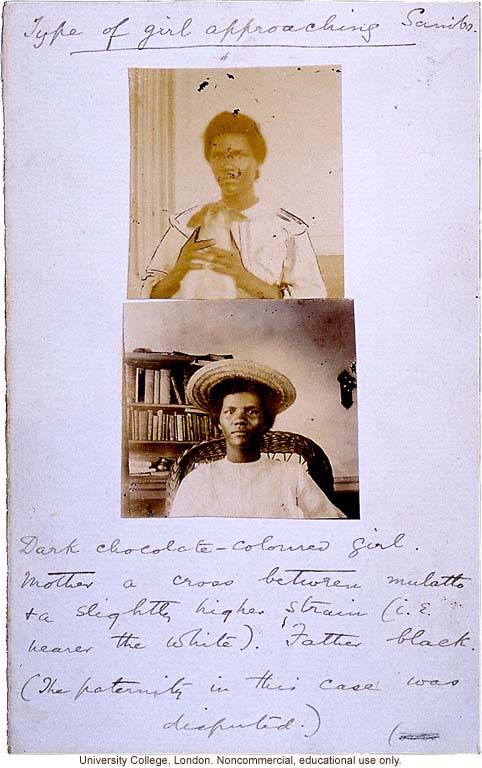 Type of girl approaching Sambo.
Dark chocolate-coloured girl.
Mother a cross between mulatto
& a slightly higher strain (i.e.
nearer the white). Father black.
(The paternity in this case was
disputed.)
University College, London. Noncommercial, educational use only.